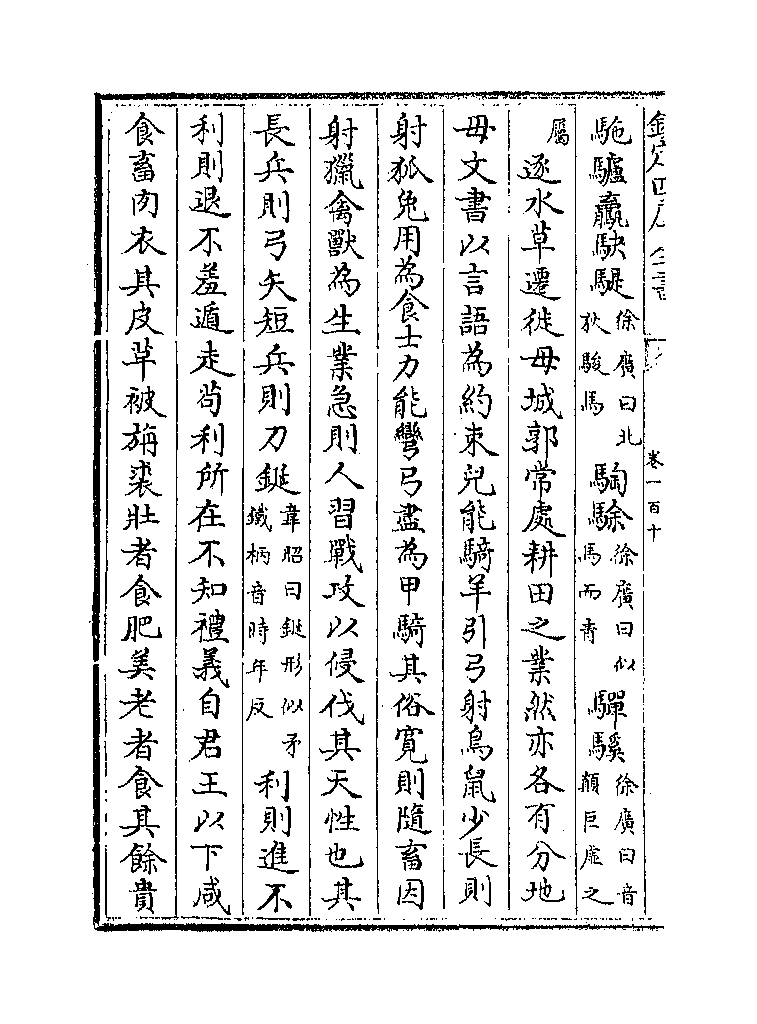 欽定四庫全書
卷一百十
駞驢驘駃騠徐廣曰北狄駿馬騊駼徐廣曰似馬而青驒騱徐廣曰音顛巨虛之
屬逐水草遷徙毋城郭常處耕田之業然亦各有分地
毋文書以言語為約束兒能騎羊引弓射鳥鼠少長則
射狐兔用為食士力能彎弓盡為甲騎其俗寛則隨畜因
射獵禽獸為生業急則人習戰攻以侵伐其天性也其
長兵則弓矢短兵則刀鋋韋昭曰鋋形似矛鐵柄音時年反利則進不
利則退不羞遁走茍利所在不知禮義自君王以下咸
食畜肉衣其皮革被旃裘壯者食肥美老者食其餘貴